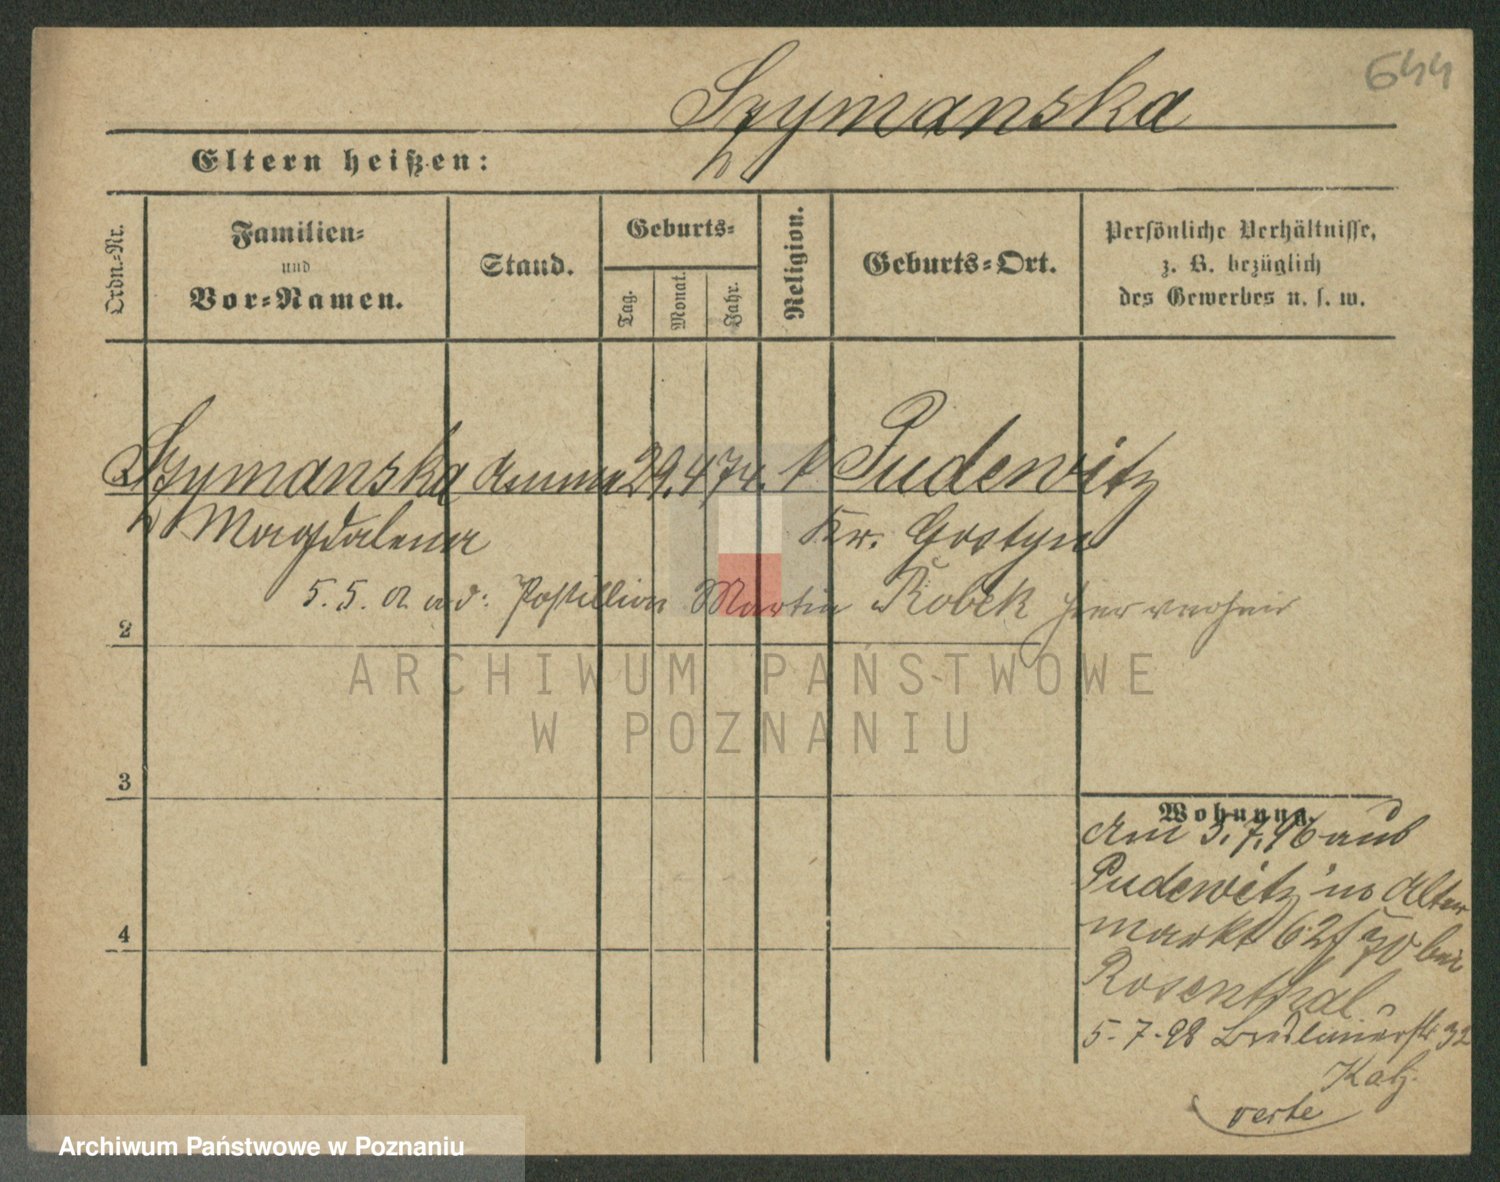 644
Szymanska
Eltern heißen:
Ordn.-Nr.
Familien-
und
Vor-Namen.
Stand.
Geburts-
Tag.
Monat.
Jahr.
Religion.
Geburts-Ort.
Persönliche Verhältnisse,
z. B. bezüglich
des Gewerbes u. s. w.
Szymanska 29. 4. 74. k Pudewitz
Magdalena Kr. Gostyn
5. 5. Postillion Martin Robek hier
2
ARCHIWUM PAŃSTWOWE
W POZNANIU
3
Wohnung.
am 3. 7. 96 aus
Pudewitz Alter
markt 62/ 70 bei
Rosenthal
5.-7.-98 32
4
Katz.
verte
Archiwum Państwowe w Poznaniu